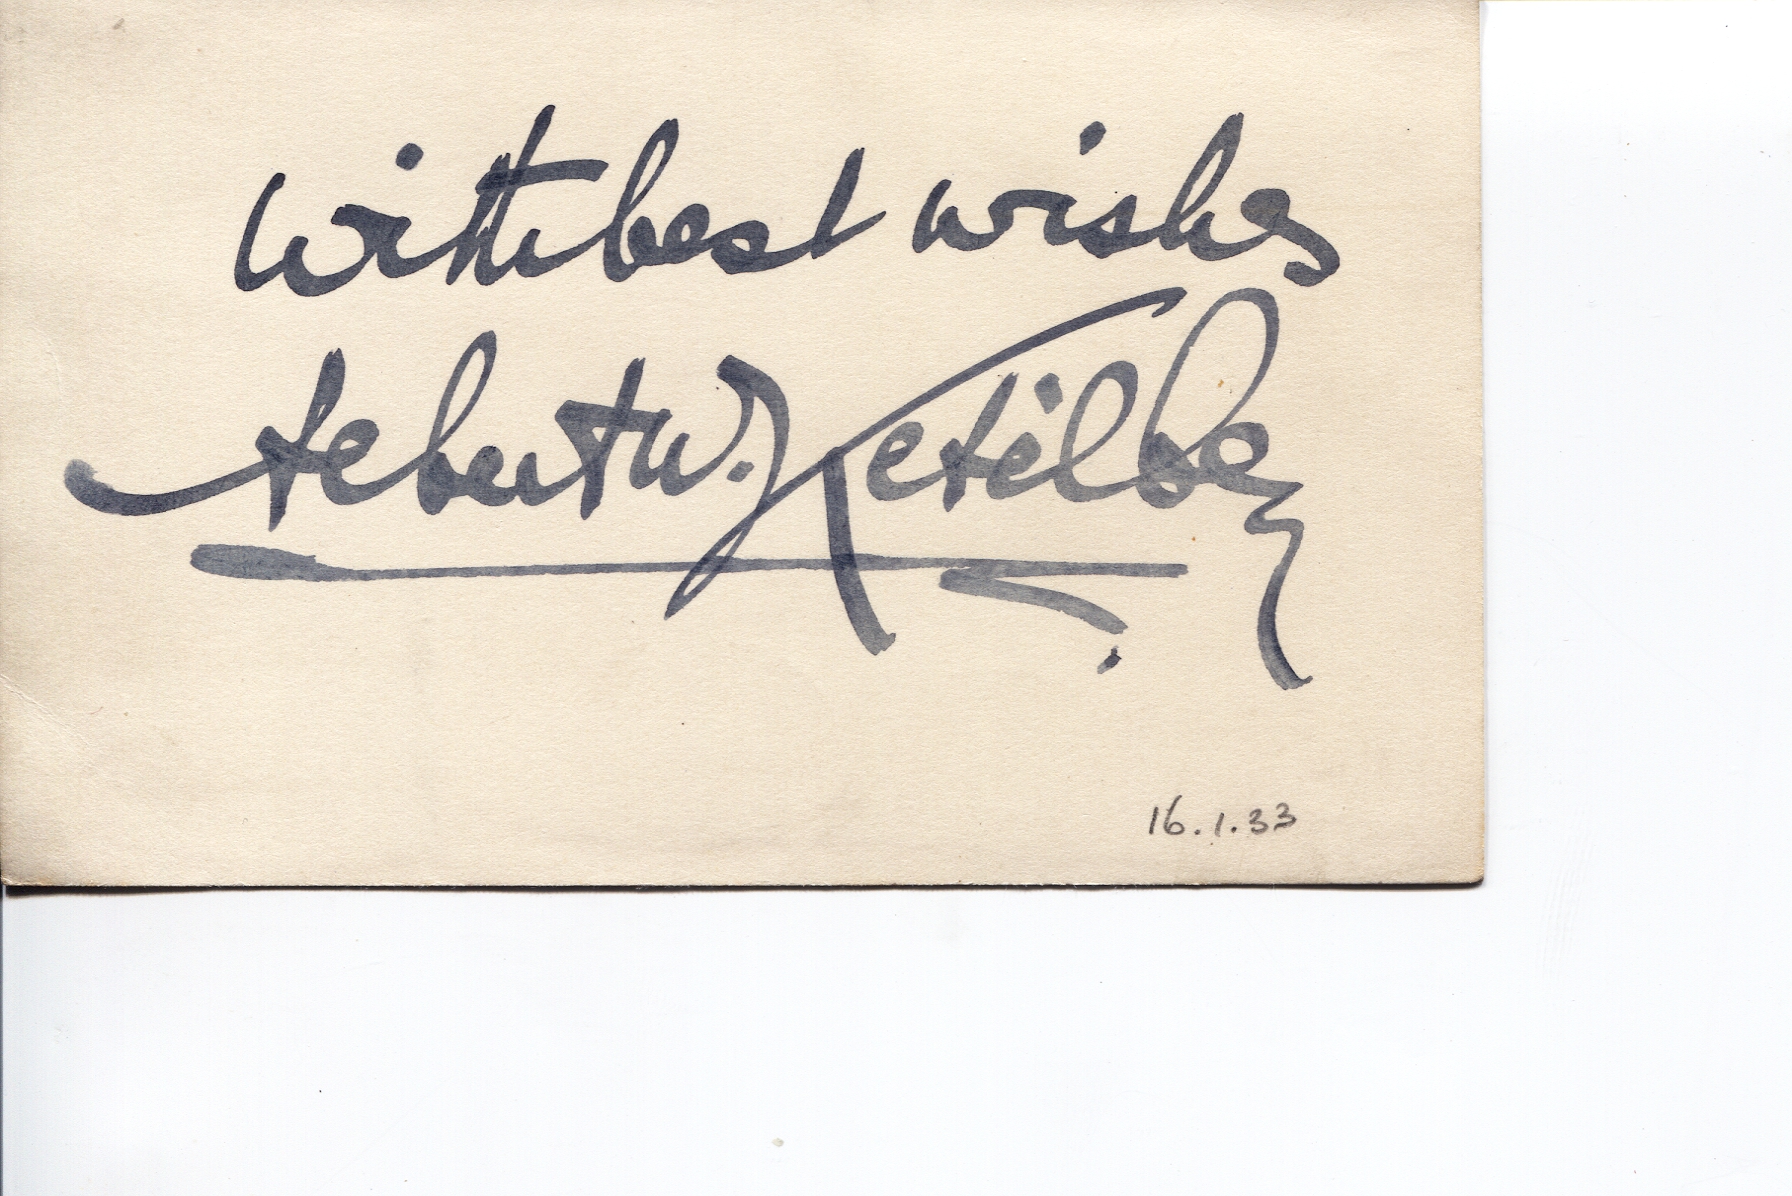 with best wishes
Albert W. Ketèlbey
16.1.33